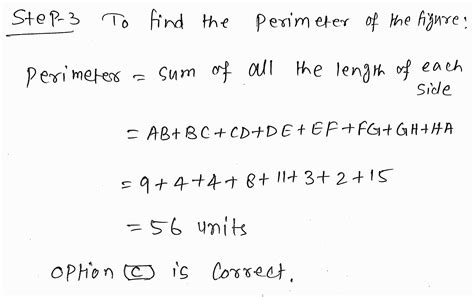 Step-3 To find the Perimeter of the figure:
Perimeter = sum of all the length of each
side
= AB+BC+CD+DE+EF+FG+GH+HA
= 9+4+4+8+11+3+2+15
= 56 units
Option C is correct.